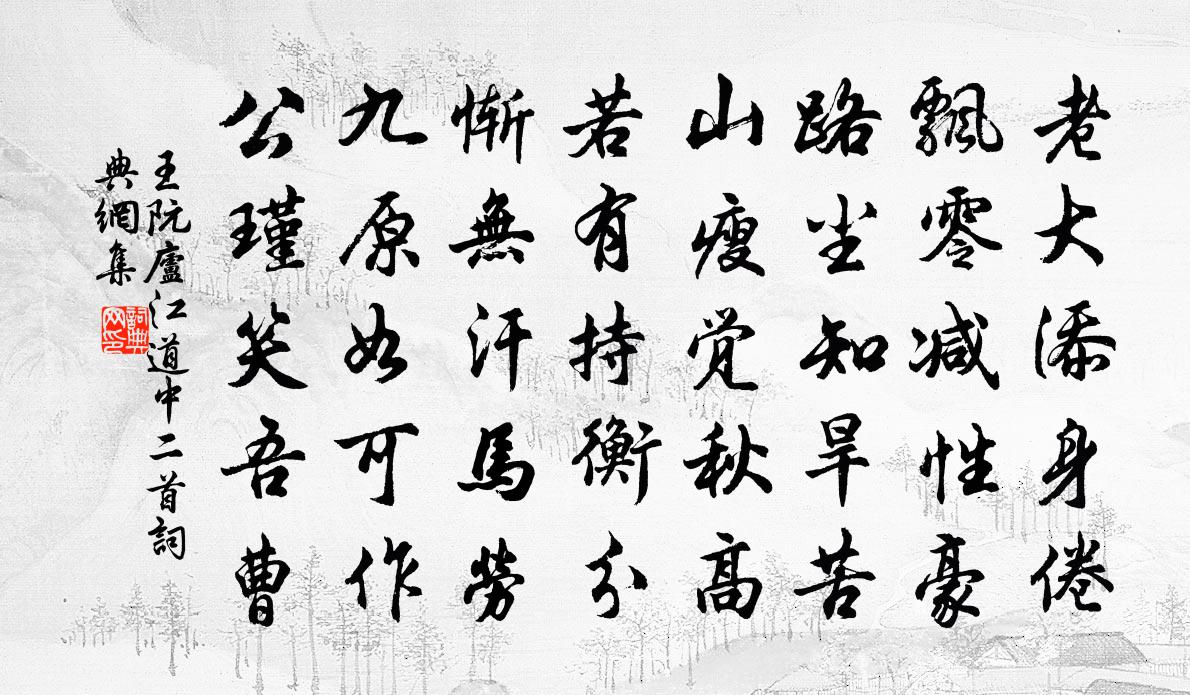 老大添身倦
飄零減性豪
路尘知旱苦
山瘦覺秋高
若有持衡分
慚無汗馬勞
九原如可作
公瑾笑吾曹
王阮廬江道中二首詞
典網集
詞典
网印